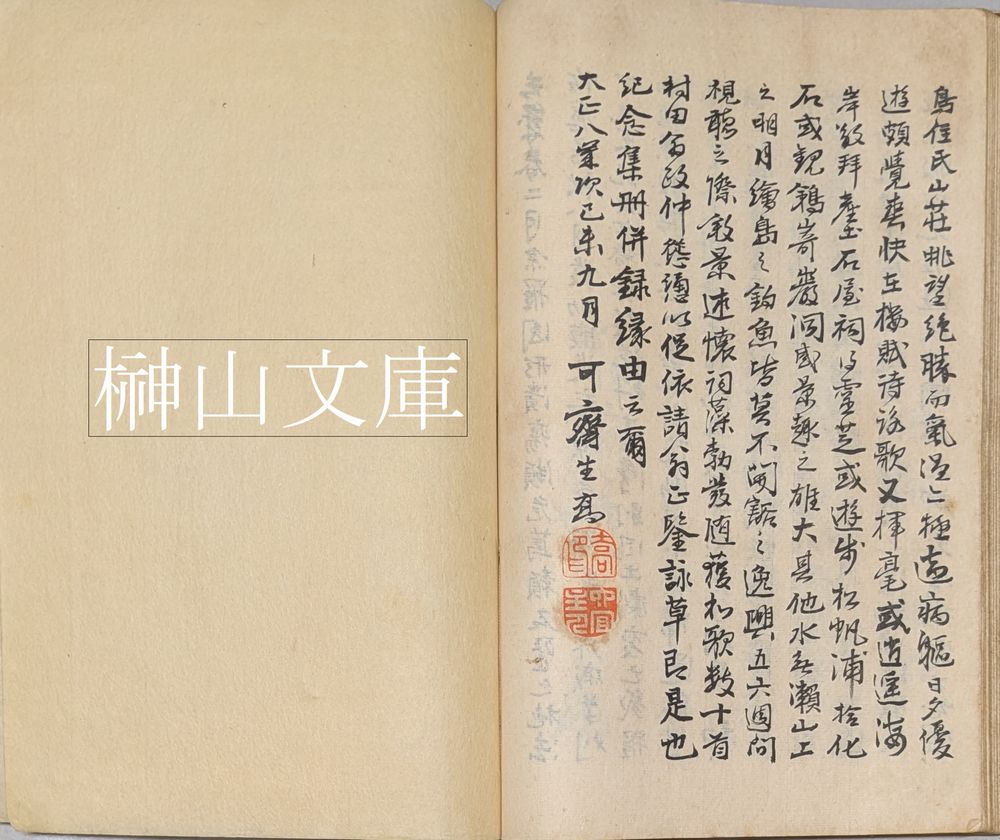 島住氏山荘眺望絶勝而氣温亦極適病軀日夕優
遊頗覺爽快在樓賦詩詠歌又揮毫或逍遥海
岸或拜岩石屋祠得靈芝或遊步松帆浦拾化
石或觀鵜㟢巖洞或景趣之雄大其他水无瀬山上
之明月繪島之釣魚皆莫不開豁之逸興五六週間
視聽之際叙景述懷詞藻勃發随獲和歌数十首
村田翁政仲慫慂以促依請翁正鑒詠草即是也
紀念集冊併録縁由云爾
大正八年次己未九月 可齋生髙
榊山文庫